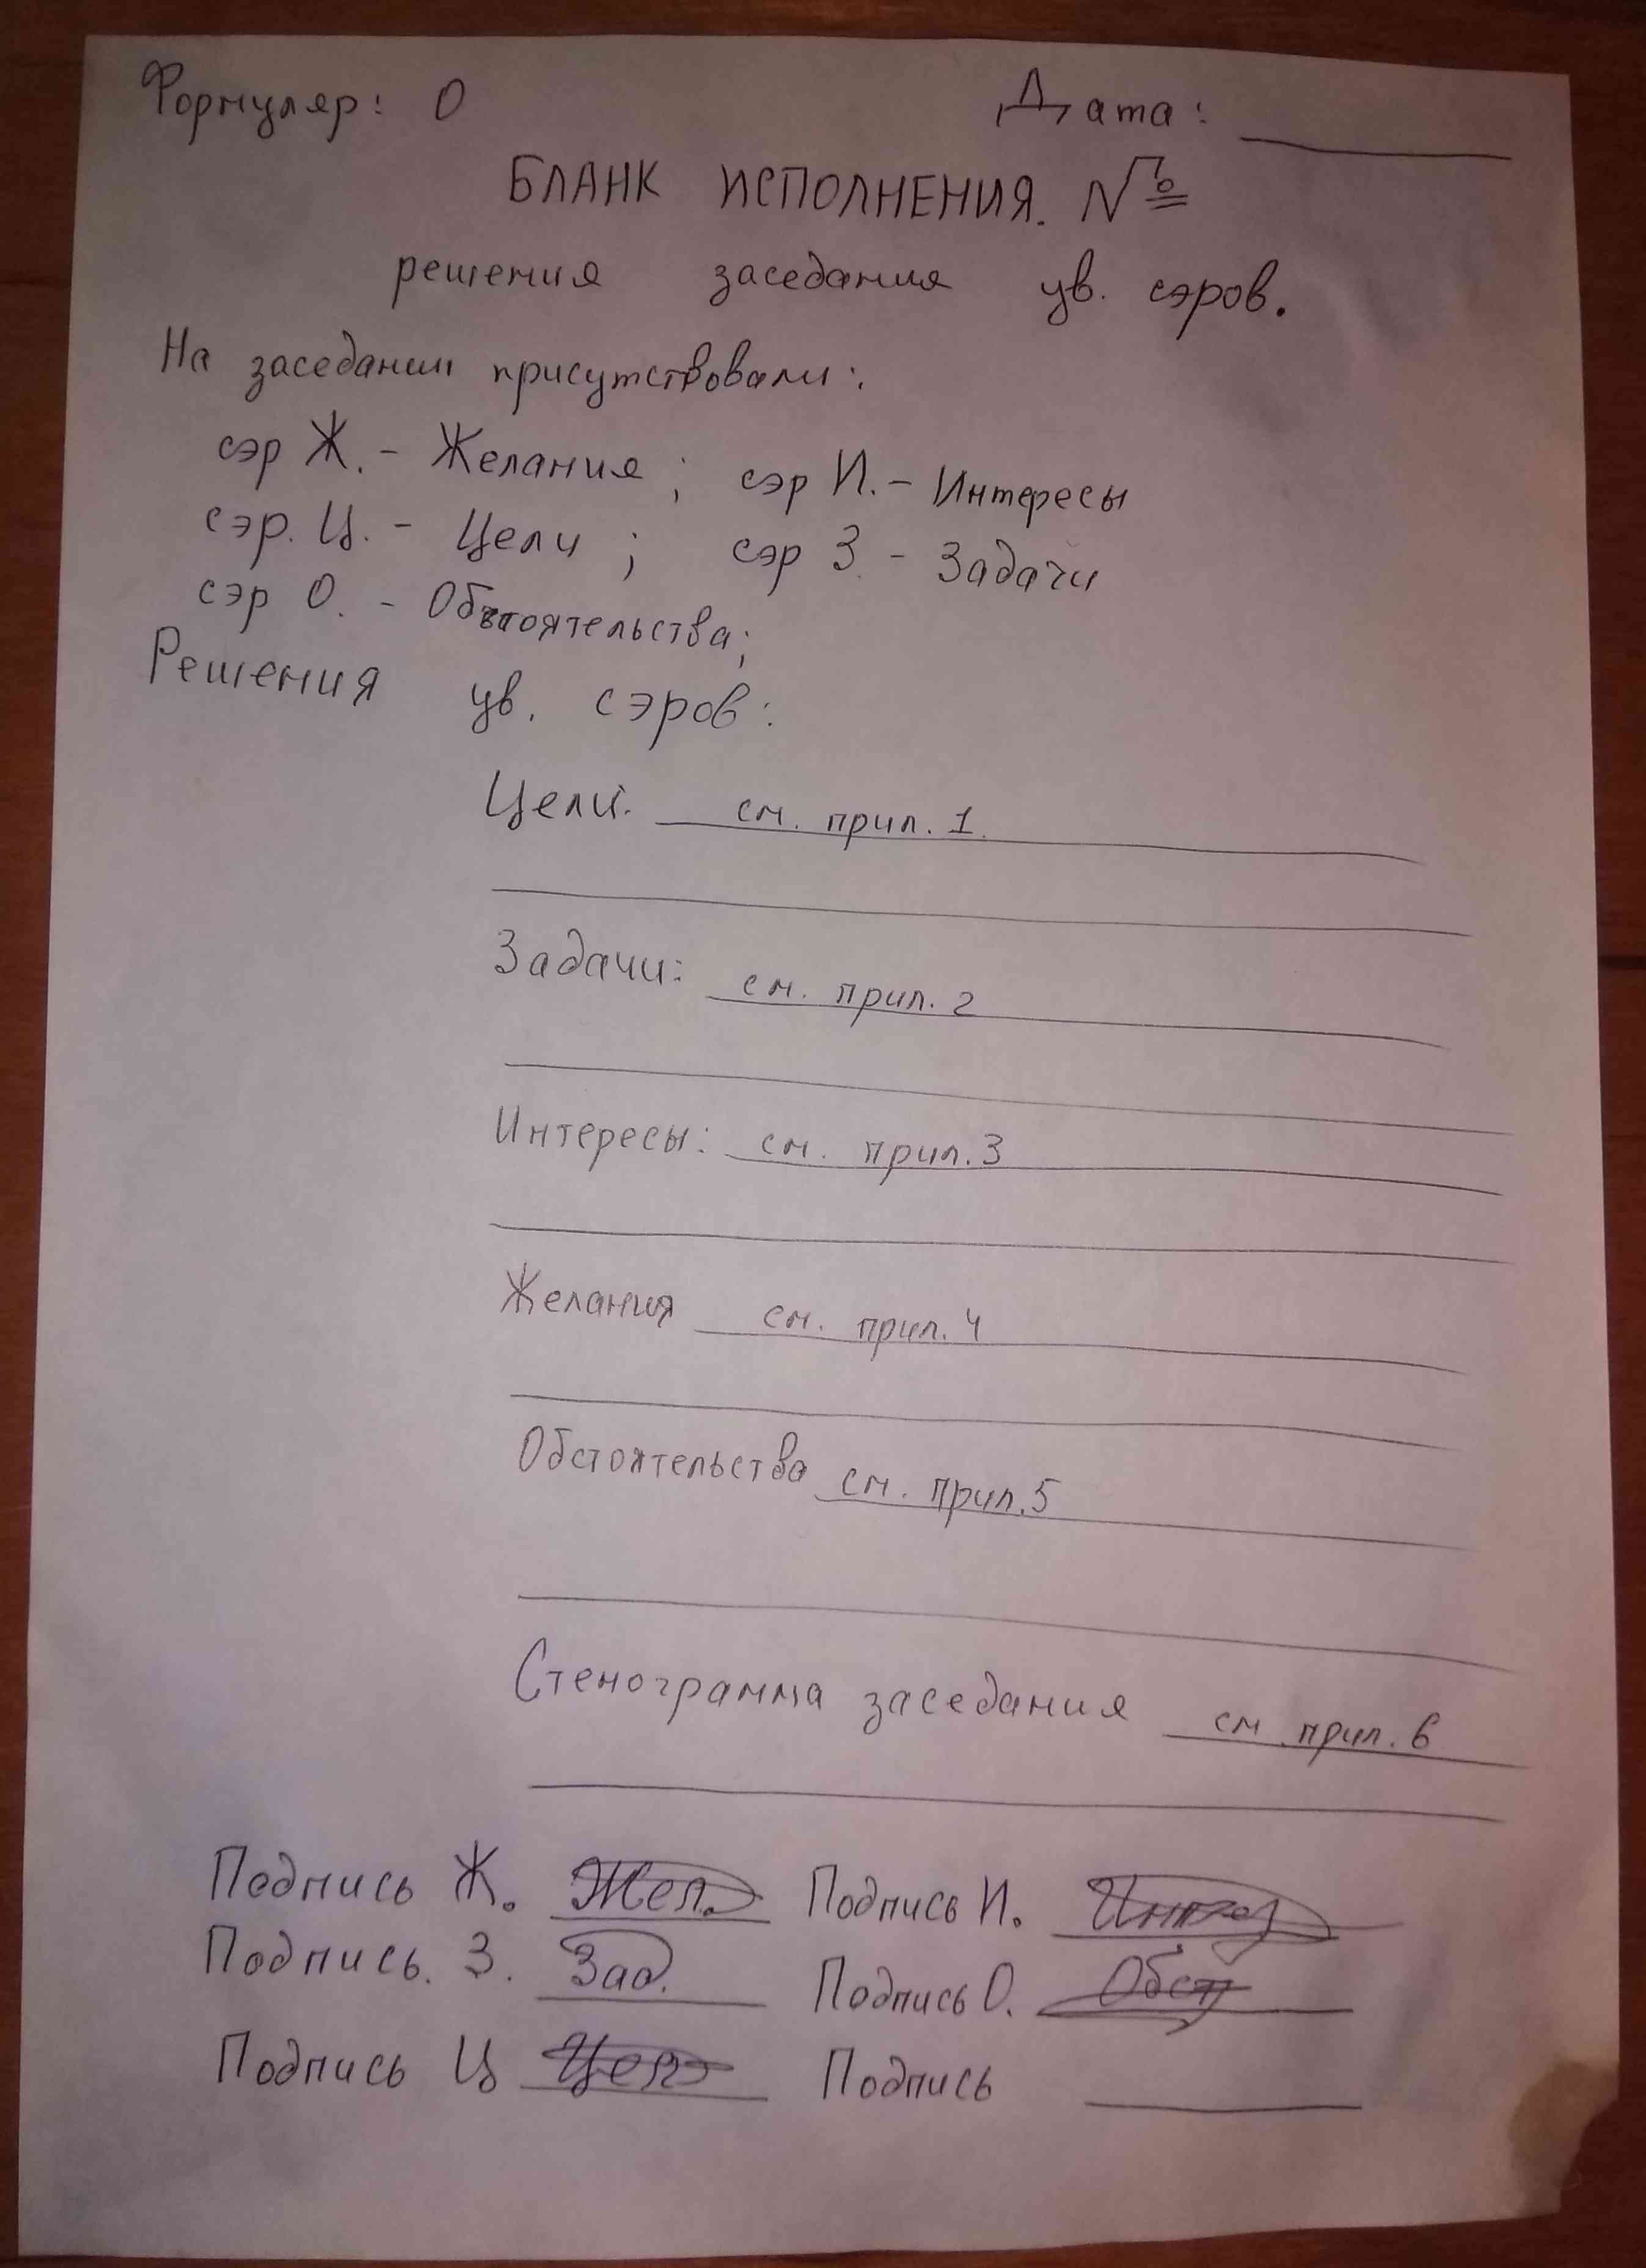 Формуляр: О Дата:
БЛАНК ИСПОЛНЕНИЯ. №
решения заседания ув. сэров.
На заседании присутствовали:
сэр Ж. - Желания; сэр И. - Интересы
сэр. Ц. - Цели; сэр З. - Задачи
сэр О. - Обстоятельства;
Решения ув. сэров:
Цели: см. прил. 1.
Задачи: см. прил. 2
Интересы: см. прил. 3
Желания см. прил. 4
Обстоятельства см. прил. 5
Стенограмма заседания см. прил. 6
Подпись Ж. Жел. Подпись И. Интер
Подпись. З. Зад. Подпись О. Обст
Подпись Ц Цел Подпись